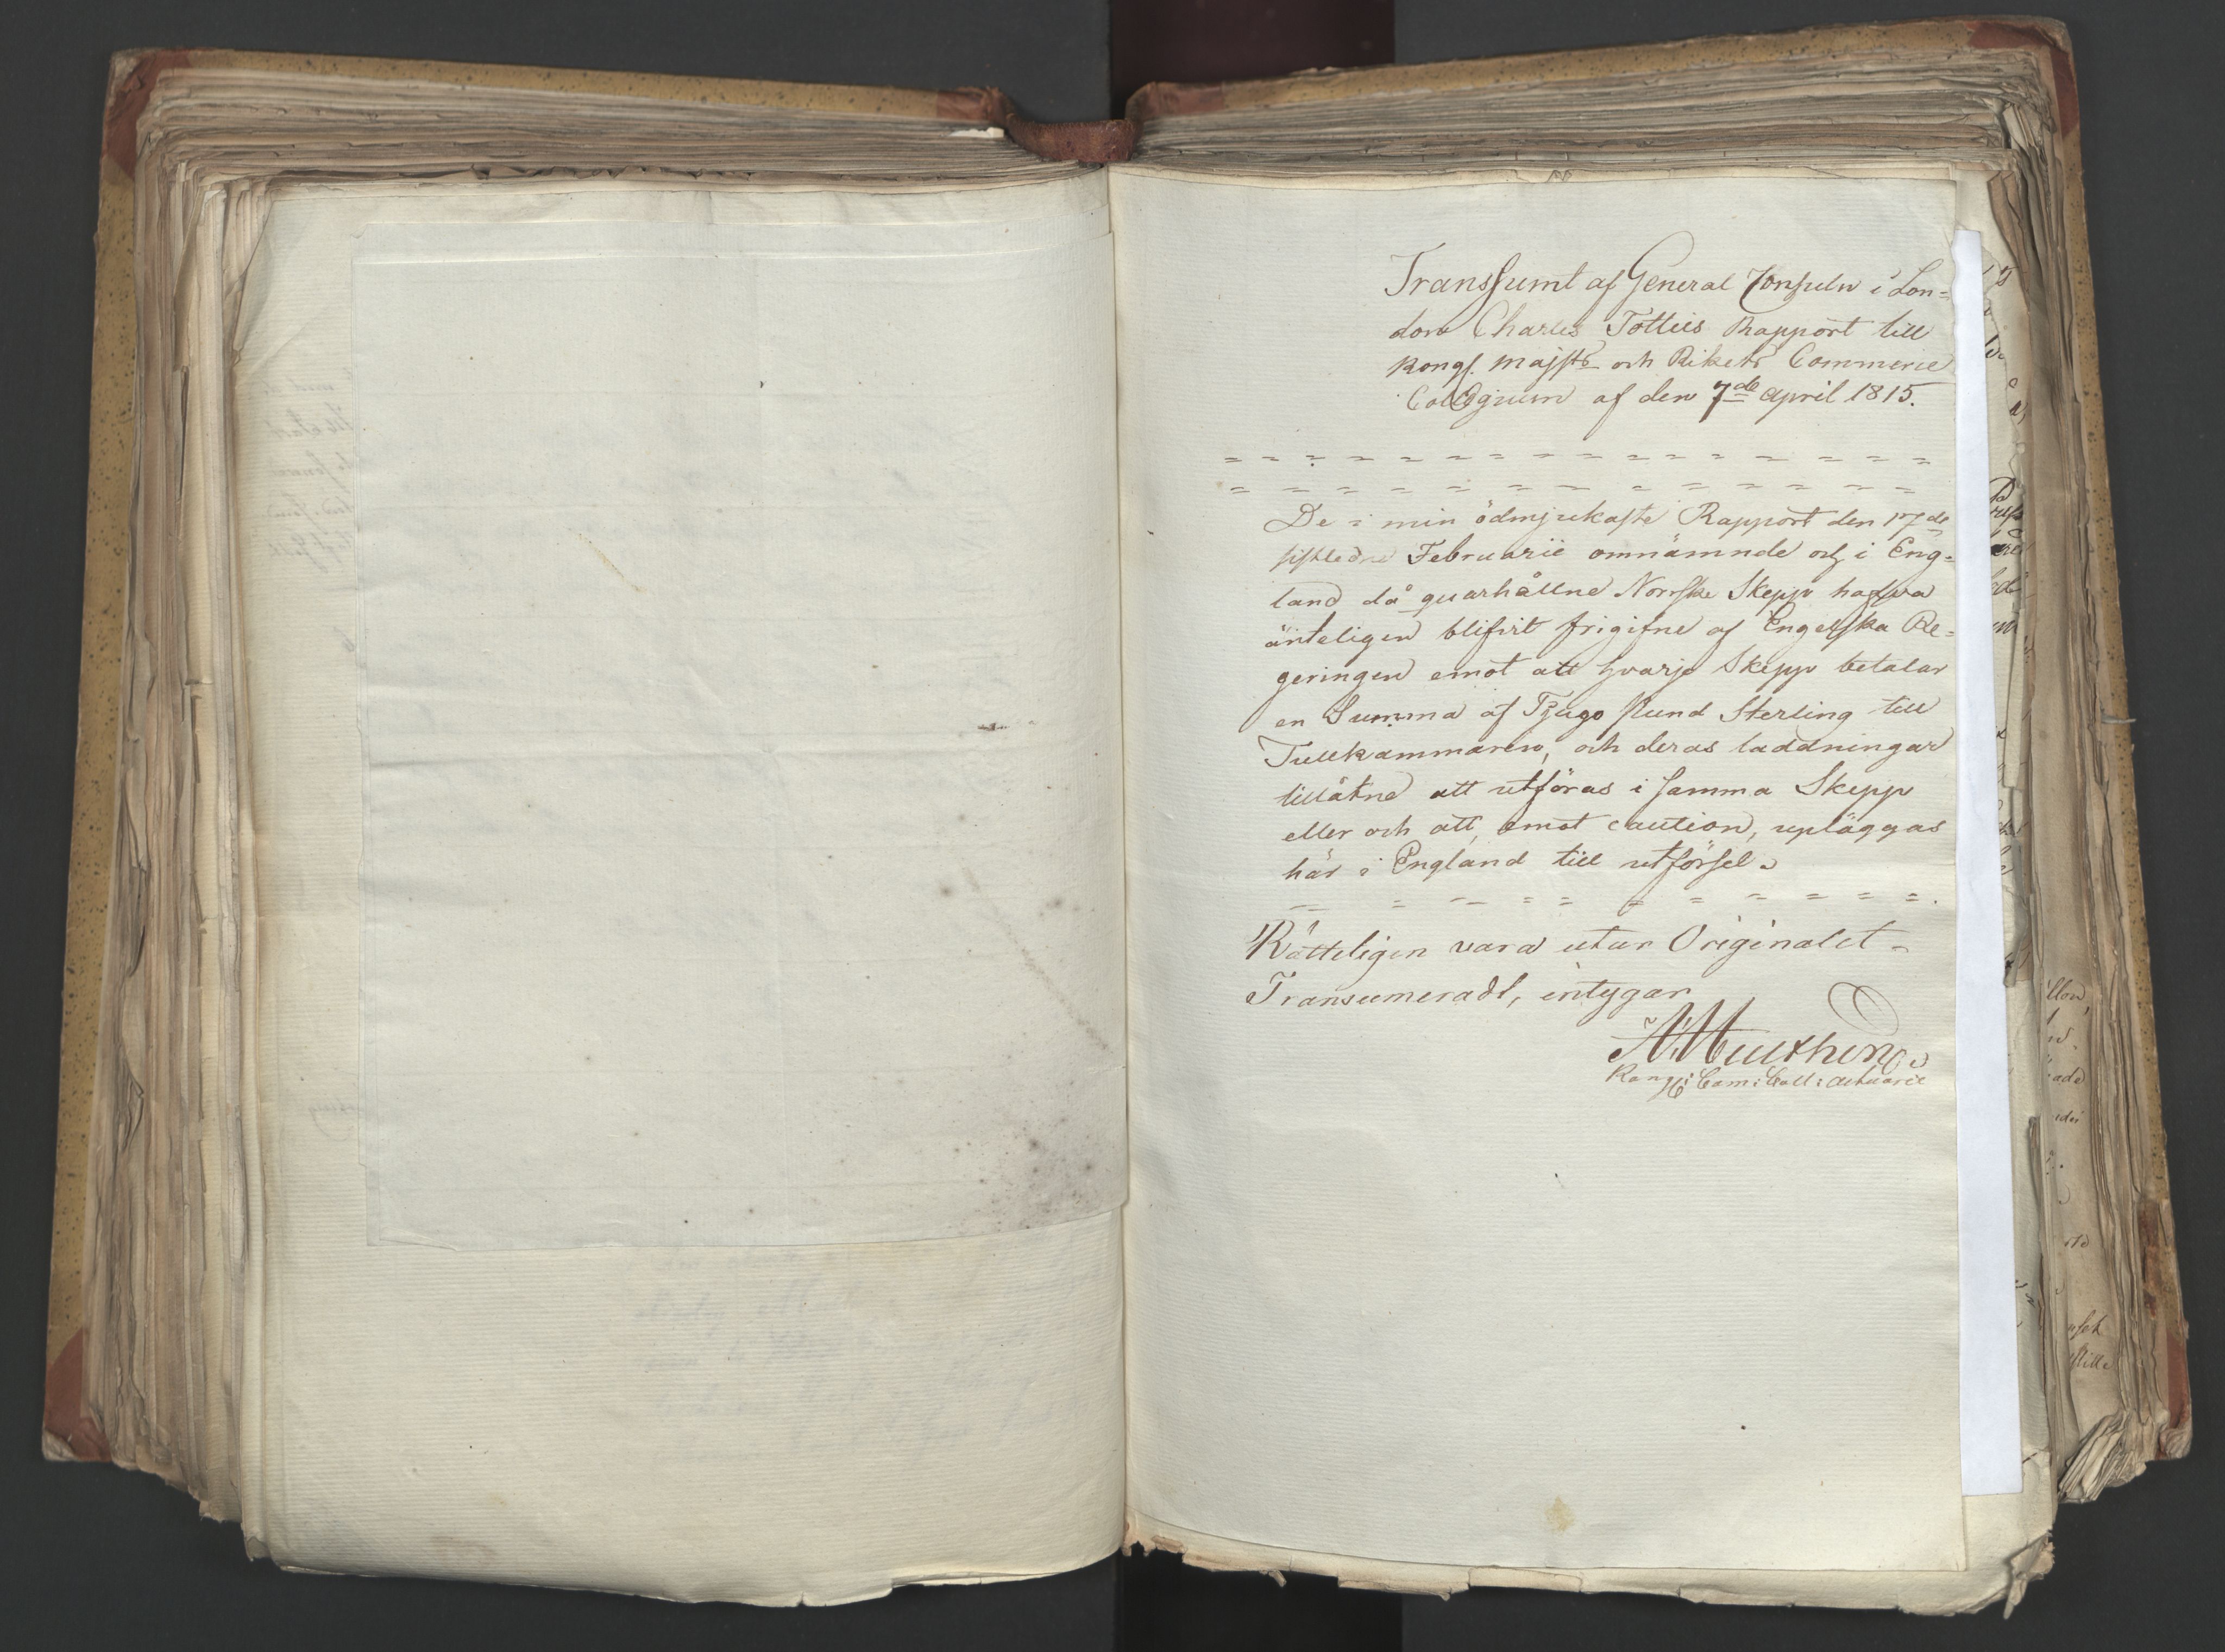 Transsumt af General Consuln i Lon=
don Charles Totties Rapport till
Kongl. Majsts och Rikets Commerce
Collegium af den 7de April 1815.
De i min ödmjukaste Rapport den 17de
sistledne Februarii omnämnde och i Eng=
land då quarhållne Norrske Skepp hafva
änteligen blifvit frigifne af Engelska Re=
geringen emot att hvarje Skepp betalar
en Summa af Tjugo Pund Sterling till
Tullkammaren, och deras laddningar
tillåtne att utföras i samma Skepp
eller och att, emot caution, upläggas
här i England till utförsel.
Rätteligen vara utur Originalet
Transumeradt, intygar
Kongl: Com: Coll: Actuarie